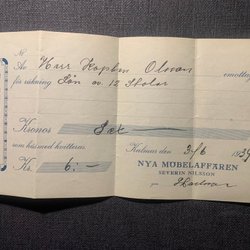 №
Av Herr Kapten Olsson emottag
för räkning Lån av 12 Stolar
Kronor Sex
som härmed kvitteras.
Kalmar den 3/6 1934
Kr. 6:-
NYA MÖBELAFFÄREN
SEVERIN NILSSON